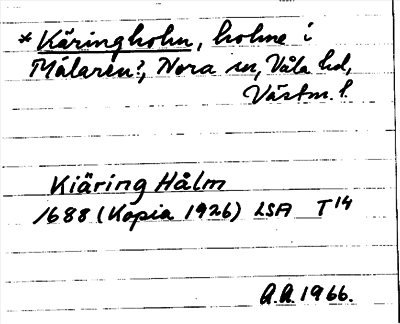 * Käringholm, holme i
Mälaren?, Nora sn, Våla hd,
Västm. l.
Kiäring Hålm
1688 (Kopia 1926) LSA T14
A.A. 1966.